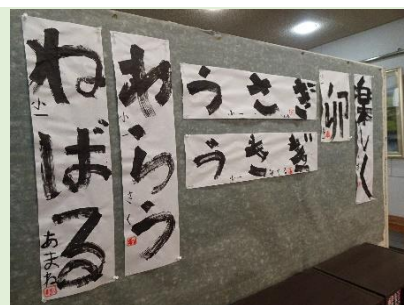 ねばる
小一
あまね
わらう
小一
さく
うさぎ
小一
うさぎ
小一
卯
楽しく